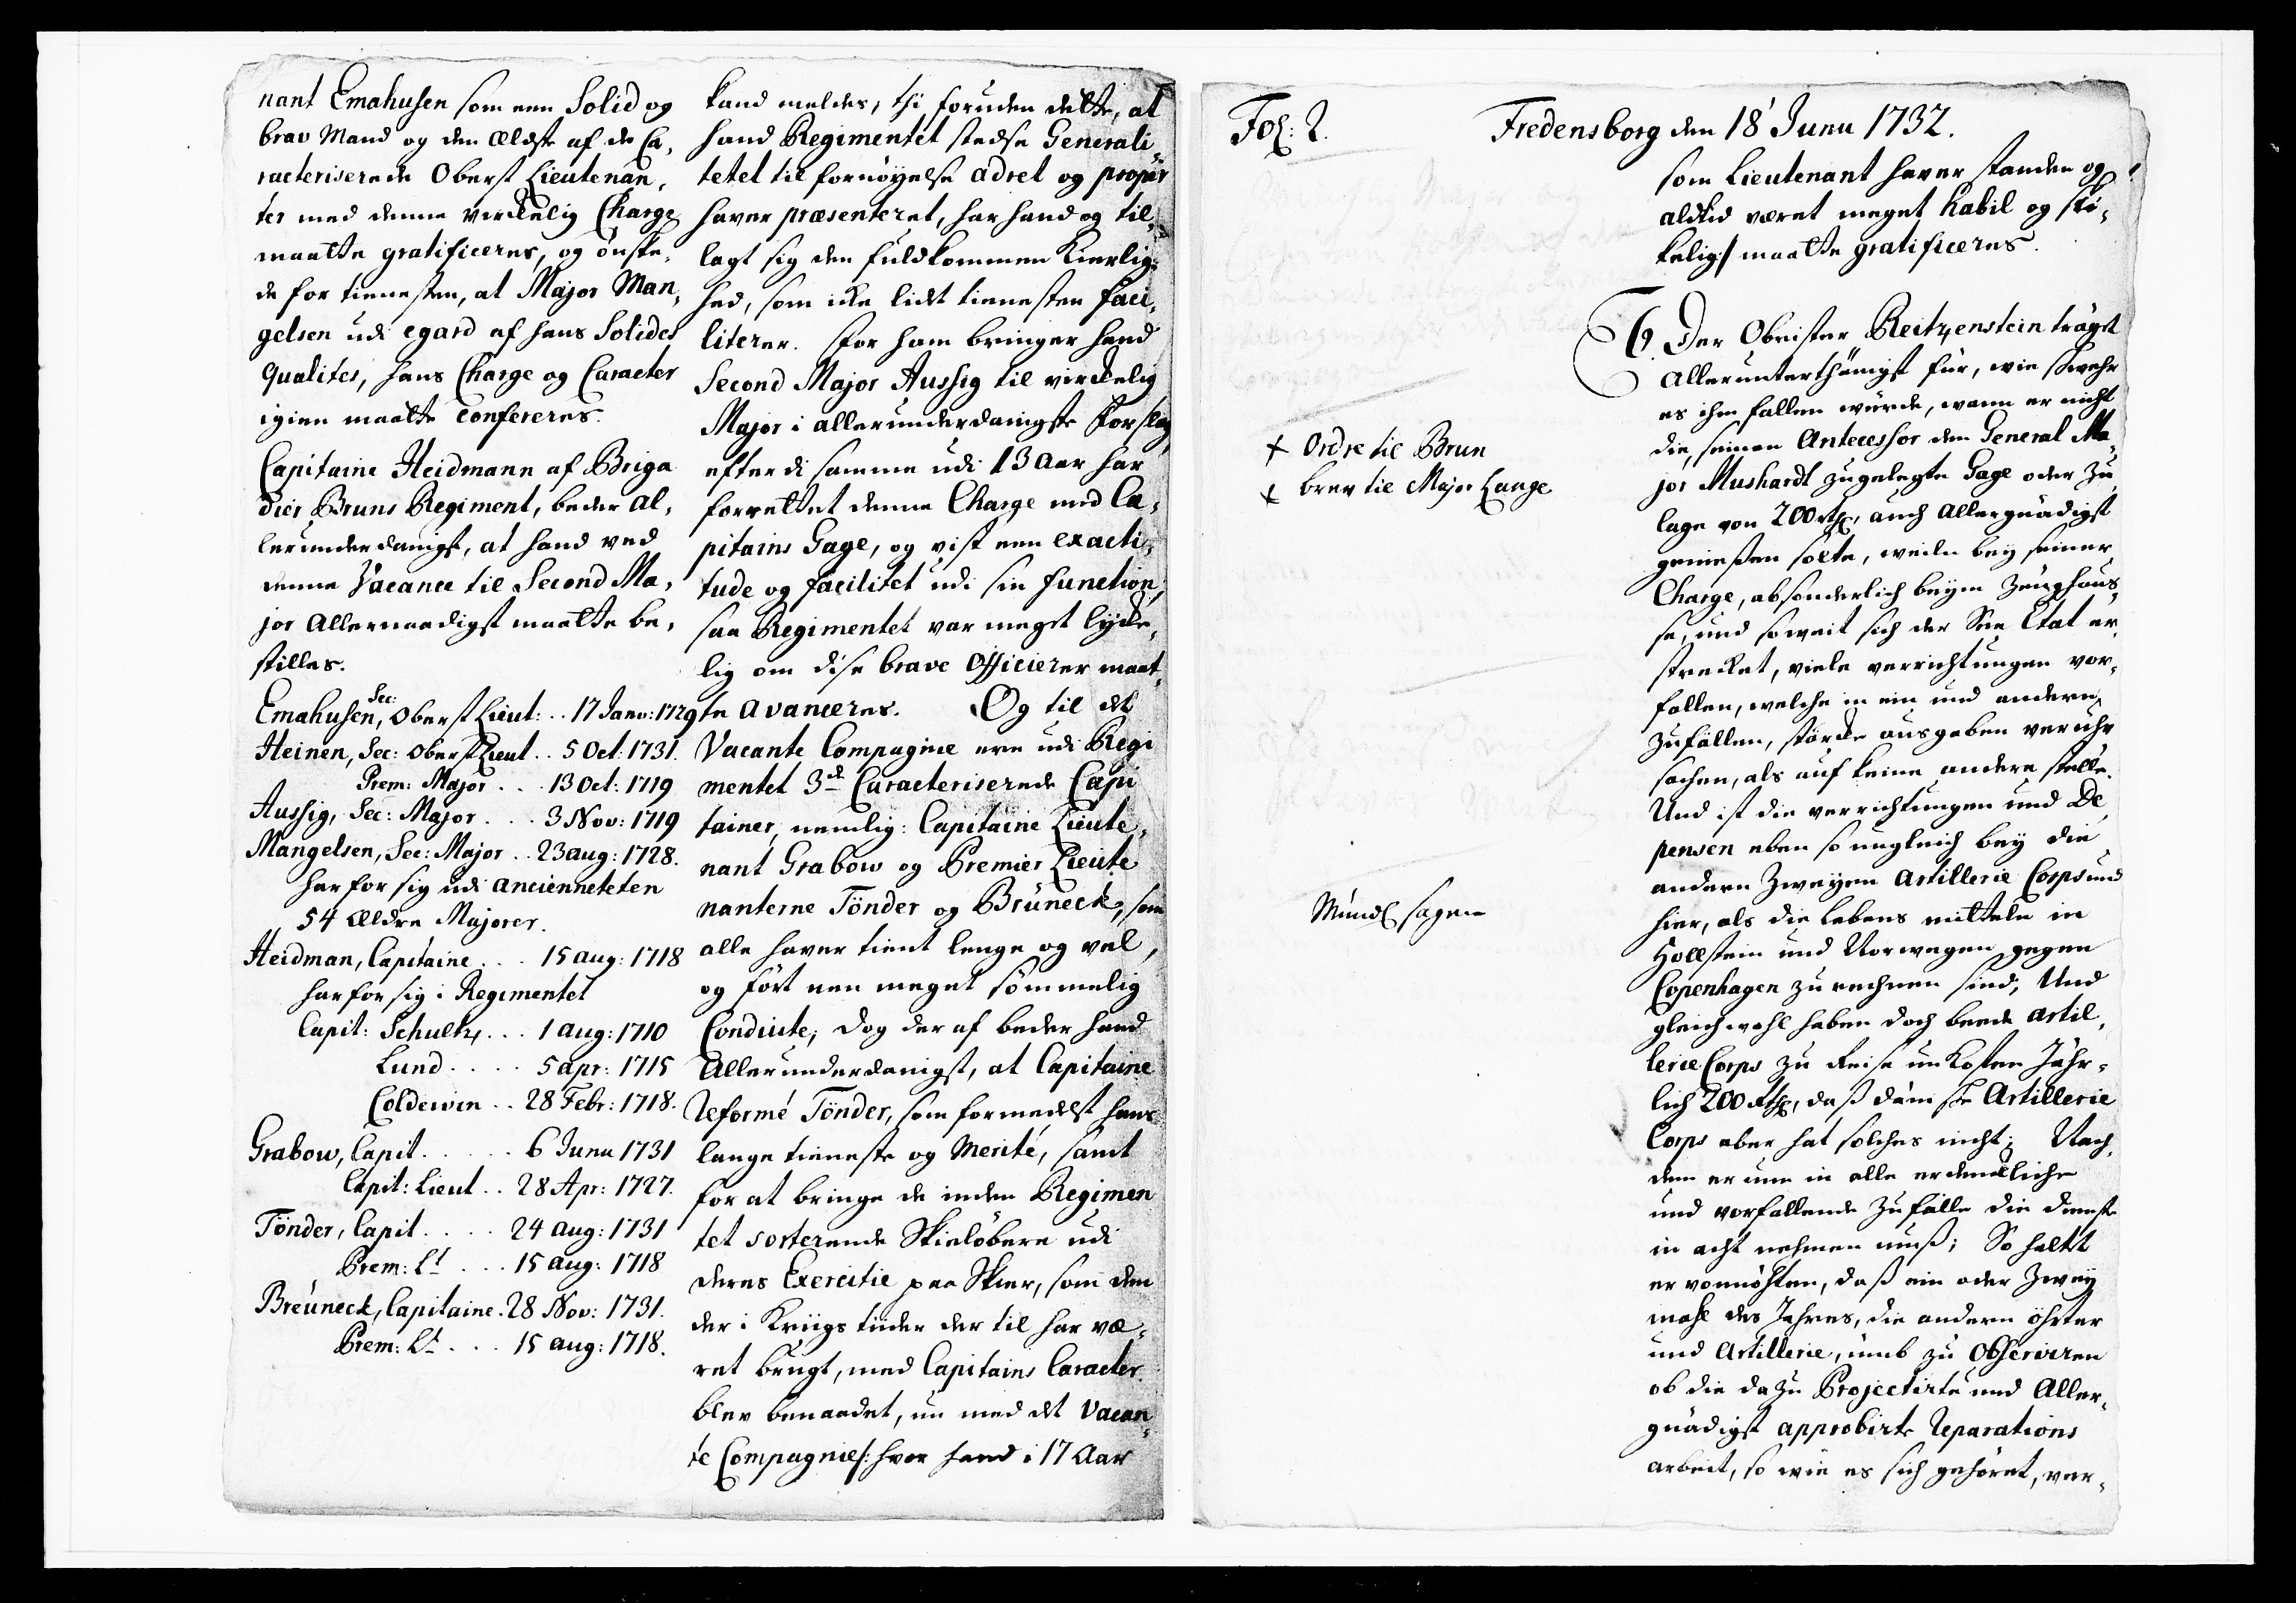 nant Emahusen som een Solid og
brav Mand og den Eldste af de Ca,
racteriserede Oberst Lieutenan,
ter med denne virkelig Charge
maatte gratificeres, og ønske,
de for tienesten, at Major Man,
gelsen udi egard af hans Solides
qualités, hans Charge og Caracter
igien maatte confereres.
Capitaine Heidmann af Briga
dier Bruns Regiment, beder al,
lerunderdanigst, at hand ved
denne Vacance til Second Ma,
jor Allernaadigst maatte be,
stilles.
Sec:
Emahusen, Oberst Lieut: .. 17 Janv: 1729
Heinen, Sec: Oberst Lieut .. 5 Oct: 1731.
Prem: Major . . . 13 Oct: 1719
Aussig, Sec: Major . . . 3 Nov: 1719
Mangelsen, Sec: Major .. 23 aug: 1728.
har for sig udi ancienneteten
54 Eldre Majorer.
Heidman, Capitaine . . . 15 aug: 1718
har for sig i Regimentet
Capit: Schultz . . . 1 aug: 1710
Lund . . . . 5 apr: 1715
Coldewin . . 28 Febr: 1718.
Grabow, Capit . . . . . 6 Junu 1731
Capit: Lieut . . 28 Apr: 1727.
Tönder, Capit . . . . 24 aug: 1731
Prem: Lt . . . 15 aug: 1718
Breüneck, Capitaine . 28 Nov: 1731.
Prem: Lt . . . 15 aug: 1718.
kand meldes, thi foruden dette, at
hand Regimentet stedse Generali,
tetet til fornøyelse adret og propür
haver præsenteret, har hand og til,
lagt sig den fuldkommen Kierlig,
hed, som icke lidt tienesten faci,
literer. For ham bringer hand
Second Major Aussig til virckelig
Major i allerunderdanigste Forslag
efterdi samme udi 13 Aar har
forrettet denne Charge med Ca,
pitains Gage, og vist een exacti,
tude og facilitet udi sin function,
saa Regimentet var meget lycke,
lig om dise brave Officierer maat,
te avanceres. Og til det
Vacante Compagnie ere udi Regi
mentet 3de Caracteriserede Capi
tainer, nemlig: Capitaine Lieute,
nant Grabow og Premier Lieute
nanterne Tönder og Brüneck, som
alle haver tient lenge og vel,
og ført een meget sømmelig
Conduite; dog der af beder hand
Allerunderdanigst, at Capitaine
Reformé Tönder, som formedelst hans
lange tieneste og Merité, samt
for at bringe de inden Regimen
tet sorterende Skieløbere udi
deres Exercitie paa Skier, som den
der i Kriigs tiider der til har væ,
ret brugt, med Capitains Caracter
blev benaadet, nu med det Vacan,
te Compagnie /: hvor hand i 17 Aar
Fol: 2.
Fredensborg den 18' Junu 1732.
som Lieutenant haver standen og
altiid været meget habil og ski,
kelig :/ maatte gratificeres.
6. Der Obrister Reitzenstein träget
Allerunterthänigst für, wie schwehr
es ihm fallen würde, wann er nicht
die, seinen Antecessor dem General Ma,
jor Mushardt zugelegte Gage oder Zu
lage von 200 Rthlr, auch Allergnädigst
genießen solte, weiln bey seiner
Charge, absonderlich beym Zeüghaus,
se, und soweit sich der See Etat er
strecket, viele verrichtungen vor,
fallen, welche in ein und andern
Zufällen, starcke ausgaben veruhr
sachen, als auf keine andere stelle.
Und ist die verrichtungen und De
pensen eben so ungleich bey die
andern Zweyen Artillerie Corps und
hier, als die lebens mitteln in
Hollstein und Norwegen gegen
Copenhagen zu rechnen sind; Und
gleichwohl haben doch beede Artil,
lerie Corps zu Reise unkosten Jähr,
lich 200 Rthlr, daß dänische Artillerie
Corps aber hat solches nicht; Nach,
dem er nun in alle erdenckliche
und vorfallende Zufälle die dienste
in acht nehmen muß; So haltet
er vonnöhten, daß ein oder Zwey
mahl des Jahres, die andern öhrter
und Artillerie, umb zu Observiren
ob die dazu Projectirte und Aller,
gnädigst approbirte Reparations
arbeit, so wie es sich gehöret, ver,
+ Ordre til Brun
+ brev til Major Lange
Mundl sagen